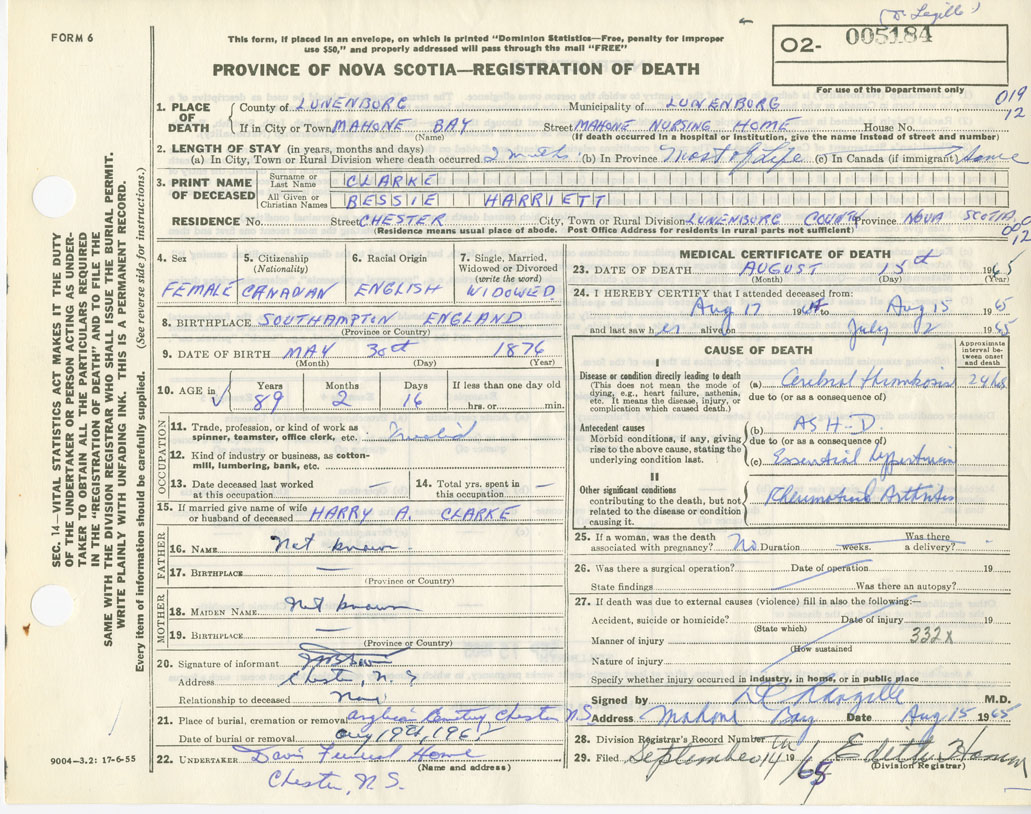 (Dr Legille)
FORM 6
This form, if placed in an envelope, on which is printed "Dominion Statistics—Free, penalty for improper
use $50," and properly addressed will pass through the mail "FREE"
O2- 005184
For use of the Department only
PROVINCE OF NOVA SCOTIA—REGISTRATION OF DEATH
019
12
1. PLACE OF DEATH County of LUNENBURG Municipality of LUNENBURG
If in City or Town MAHONE BAY Street MAHONE NURSING HOME House No.
(Name) (If death occurred in a hospital or institution, give the name instead of street and number)
2. LENGTH OF STAY (in years, months and days)
(a) In City, Town or Rural Division where death occurred 2 (b) In Province Most of Life (c) In Canada (if immigrant) Same
3. PRINT NAME OF DECEASED Surname or Last Name CLARKE
All Given or Christian Names BESSIE HARRIETT
RESIDENCE No. Street CHESTER City, Town or Rural Division LUNENBURG COUNTY Province NOVA SCOTIA
(Residence means usual place of abode. Post Office Address for residents in rural parts not sufficient)
12
4. Sex FEMALE
5. Citizenship (Nationality) CANADIAN
6. Racial Origin ENGLISH
7. Single, Married, Widowed or Divorced (write the word) WIDOWED
8. BIRTHPLACE SOUTHAMPTON ENGLAND
(Province or Country)
9. DATE OF BIRTH MAY 30th 1876
(Month) (Day) (Year)
10. AGE in Years 89 Months 2 Days 16 If less than one day old hrs. or min.
OCCUPATION
11. Trade, profession, or kind of work as spinner, teamster, office clerk, etc. Invalid
12. Kind of industry or business, as cotton-mill, lumbering, bank, etc.
13. Date deceased last worked at this occupation —
14. Total yrs. spent in this occupation —
15. If married give name of wife or husband of deceased HARRY A. CLARKE
FATHER
16. NAME Not known
17. BIRTHPLACE —
(Province or Country)
MOTHER
18. MAIDEN NAME Not known
19. BIRTHPLACE —
(Province or Country)
20. Signature of informant
Address Chester, N.S
Relationship to deceased None
21. Place of burial, cremation or removal Chester N.S.
Date of burial or removal Aug 19th, 1965
22. UNDERTAKER Davis Funeral Home
(Name and address)
Chester, N.S.
MEDICAL CERTIFICATE OF DEATH
23. DATE OF DEATH AUGUST 15th 1965
(Month) (Day) (Year)
24. I HEREBY CERTIFY that I attended deceased from:
Aug 17 19 to Aug 15 1965
and last saw her alive on July 2 1965
CAUSE OF DEATH
Approximate interval between onset and death
I
Disease or condition directly leading to death
(This does not mean the mode of dying, e.g., heart failure, asthenia, etc. It means the disease, injury, or complication which caused death.)
(a) Cerebral thrombosis 24 hrs
due to (or as a consequence of)
Antecedent causes
Morbid conditions, if any, giving rise to the above cause, stating the underlying condition last.
(b) ASH-D.
due to (or as a consequence of)
(c) Essential Hypertension
II
Other significant conditions contributing to the death, but not related to the disease or condition causing it.
Rheumatoid Arthritis
25. If a woman, was the death associated with pregnancy? No Duration weeks. Was there a delivery?
26. Was there a surgical operation? Date of operation 19
State findings Was there an autopsy?
27. If death was due to external causes (violence) fill in also the following:—
Accident, suicide or homicide? Date of injury 19
(State which)
Manner of injury 332x
(How sustained
Nature of injury
Specify whether injury occurred in industry, in home, or in public place
Signed by M.D.
Address Mahone Bay Date Aug 15 1965
28. Division Registrar's Record Number
29. Filed September 14th 1965 Edith Hamm
(Division Registrar)
SEC. 14—VITAL STATISTICS ACT MAKES IT THE DUTY
OF THE UNDERTAKER OR PERSON ACTING AS UNDER-
TAKER TO OBTAIN ALL THE PARTICULARS REQUIRED
IN THE "REGISTRATION OF DEATH" AND TO FILE THE
SAME WITH THE DIVISION REGISTRAR WHO SHALL ISSUE THE BURIAL PERMIT.
WRITE PLAINLY WITH UNFADING INK. THIS IS A PERMANENT RECORD.
Every item of information should be carefully supplied. (See reverse side for instructions.)
9004—3.2: 17-6-55